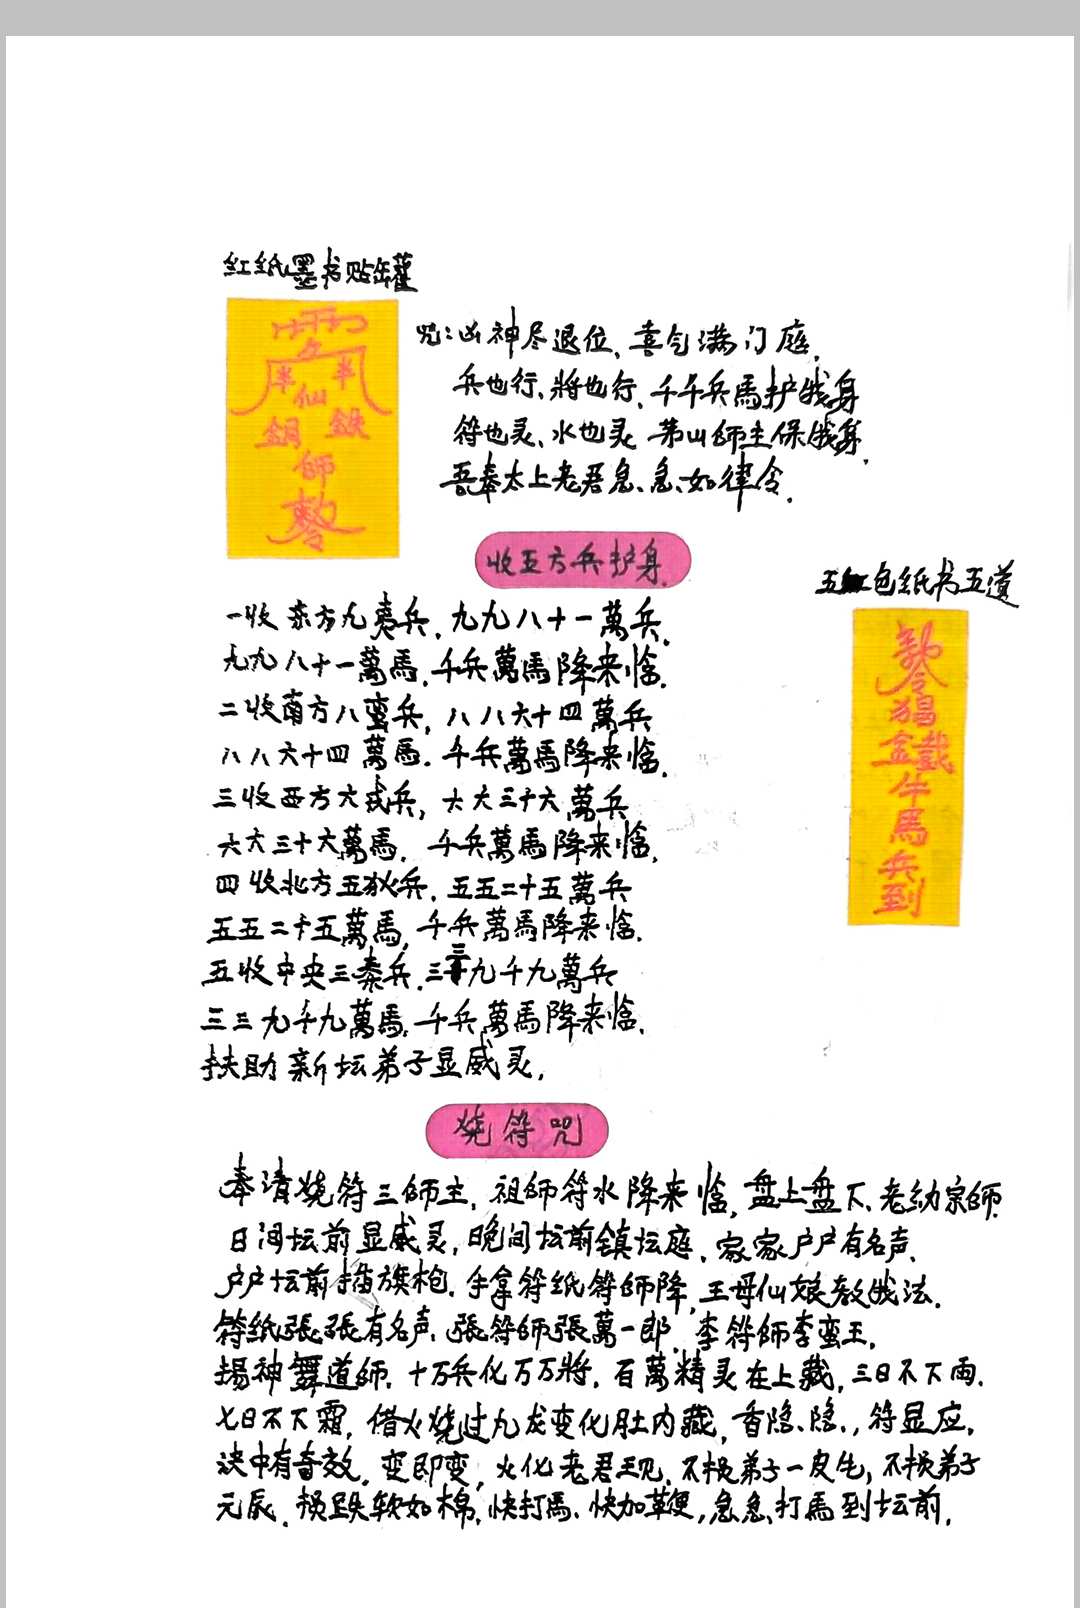 红纸墨书贴罐
半 仙 半
銅 鉄
師
咒:凶神尽退位、喜气满门庭.
兵也行、將也行、千千兵馬护我身
符也灵、水也灵 茅山師主保我身.
吾奉太上老君急、急、如律令.
收五方兵护身.
五红包纸书五道
猖
金戠
牛
馬
兵
到
一收东方九夷兵.九九八十一萬兵.
九九八十一萬馬.千兵萬馬降来临.
二收南方八蛮兵,八八六十四萬兵
八八六十四萬馬.千兵萬馬降来临.
三收西方六戎兵,六六三十六萬兵
六六三十六萬馬.千兵萬馬降来临.
四收北方五狄兵.五五二十五萬兵
五五二十五萬馬,千兵萬馬降来临.
五收中央三秦兵.三三九千九萬兵
三三九千九萬馬.千兵萬馬降来临.
扶助新坛弟子显威灵,
烧符咒
奉请烧符三師主,祖師符水降来临,盘上盘下、老幼宗師.
日间坛前显威灵,晚间坛前鎮坛庭.家家户户有名声.
户户坛前插旗枪.手拿符纸符師降,王母仙娘教我法.
符纸張張有名声.張符師張萬一郎.李符師李蛮王.
揚神舞道師.十万兵化万万將.百萬精灵在上藏,三日不下雨.
七日不下霜,借火烧过九龙变化肚内藏,香隐、隐、,符显应,
决中有奇效.变即变,火化老君王见.不损弟子一皮毛,不损弟子
元辰.损跌软如棉.快打馬.快加鞭,急急、打馬到坛前.